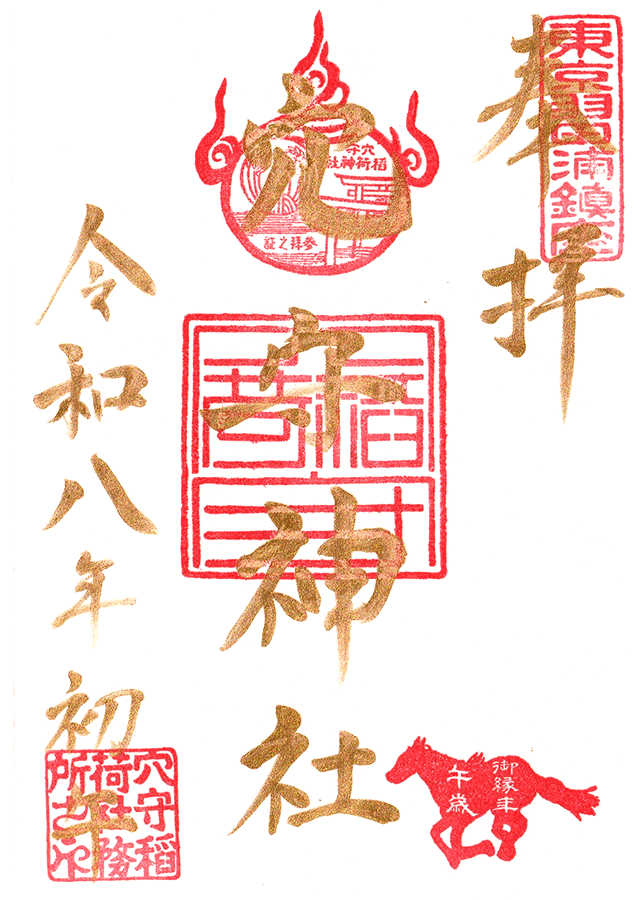 奉拝
東京羽田浦鎮座
穴守神社
穴守
稲荷神社
参拝之証
稲荷
御縁年
午歳
令和八年初午
穴守稲
荷社務
所之印